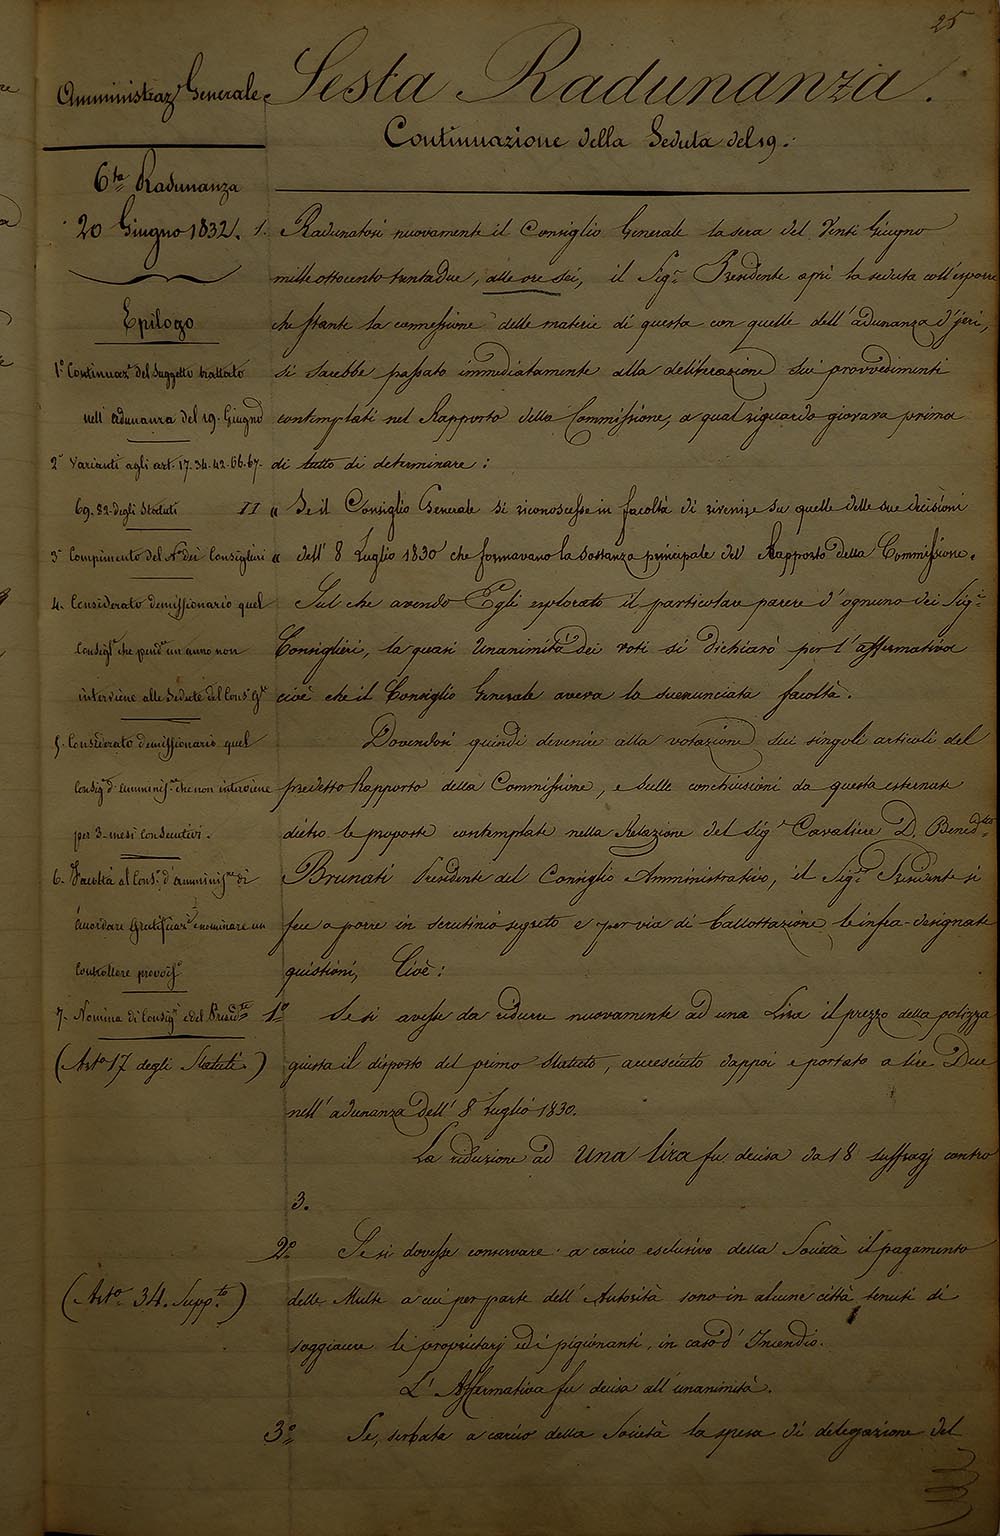 25
Amministraz.e Generale
Sesta Radunanza.
Continuazione della Seduta del 19.
6.ta Radunanza
20 Giugno 1832.
Epilogo
1.° Continuaz.e del Suggetto trattato
nell' adunanza del 19. Giugno
2.° Varianti agli art. 17. 34. 42. 66. 67.
69. 82. degli Statuti
3.° Compimento del N.° dei Consiglieri
4. Considerato demissionario quel
Consigl.e che pend.e un anno non
interviene alle Sedute del Cons.o G.le
5. Considerato demissionario quel
Consig.e d'amminis.ne che non interviene
per 3. mesi consecutivi.
6. Facoltà al Cons.o d'amminis.ne di
accordare Gratificaz.i e nominare un
Controllore provvis.o
7. Nomina di Consig.i e del Presid.te
(Art.o 17 degli Statuti.)
(Art.o 34. Supp.to)
1. Radunatosi nuovamente il Consiglio Generale la sera del Venti Giugno
mille ottocento trentadue, alle ore sei, il Sig.r Presidente aprì la seduta coll'esporre
che stante la connessione delle materie di questa con quelle dell'adunanza d'jeri,
si sarebbe passato immediatamente alla deliberazione sui provvedimenti
contemplati nel Rapporto della Commissione, a qual riguardo giovava prima
di tutto di determinare:
II « Se il Consiglio Generale si riconoscesse in facoltà di rivenire su quelle delle sue decisioni
« dell' 8 Luglio 1830 che formavano la sostanza principale del Rapporto della Commissione.
Sul che avendo Egli esplorato il particolare parere d'ognuno dei Sig.ri
Consiglieri, la quasi Unanimità dei voti si dichiarò per l'affermativa
cioè che il Consiglio Generale aveva la suenunciata facoltà.
Dovendosi quindi devenire alla votazione sui singoli articoli del
predetto Rapporto della Commissione, e sulle conchiusioni da questa esternate
dietro le proposte contemplate nella Relazione del Sig.r Cavaliere D. Bened.tto
Brunati Presidente del Consiglio Amministrativo, il Sig.r Presidente si
fece a porre in scrutinio segreto e per via di ballottazione le infra-designate
quistioni, Cioè:
1.° Se si avesse da ridurre nuovamente ad una Lira il prezzo della polizza
giusta il disposto del primo Statuto, accresciuto dappoi e portato a lire Due
nell' adunanza dell' 8 Luglio 1830.
La riduzione ad Una lira fu decisa da 18 suffragj contro
3.
2.° Se si dovesse conservare a carico esclusivo della Società il pagamento
delle Multe a cui per parte dell' Autorità sono in alcune città tenuti di
soggiacere li proprietarj ed i pigionanti, in caso d' Incendio.
L' Affermativa fu decisa all' unanimità.
3.° Se, serbata a carico della Società la spesa di delegazione del